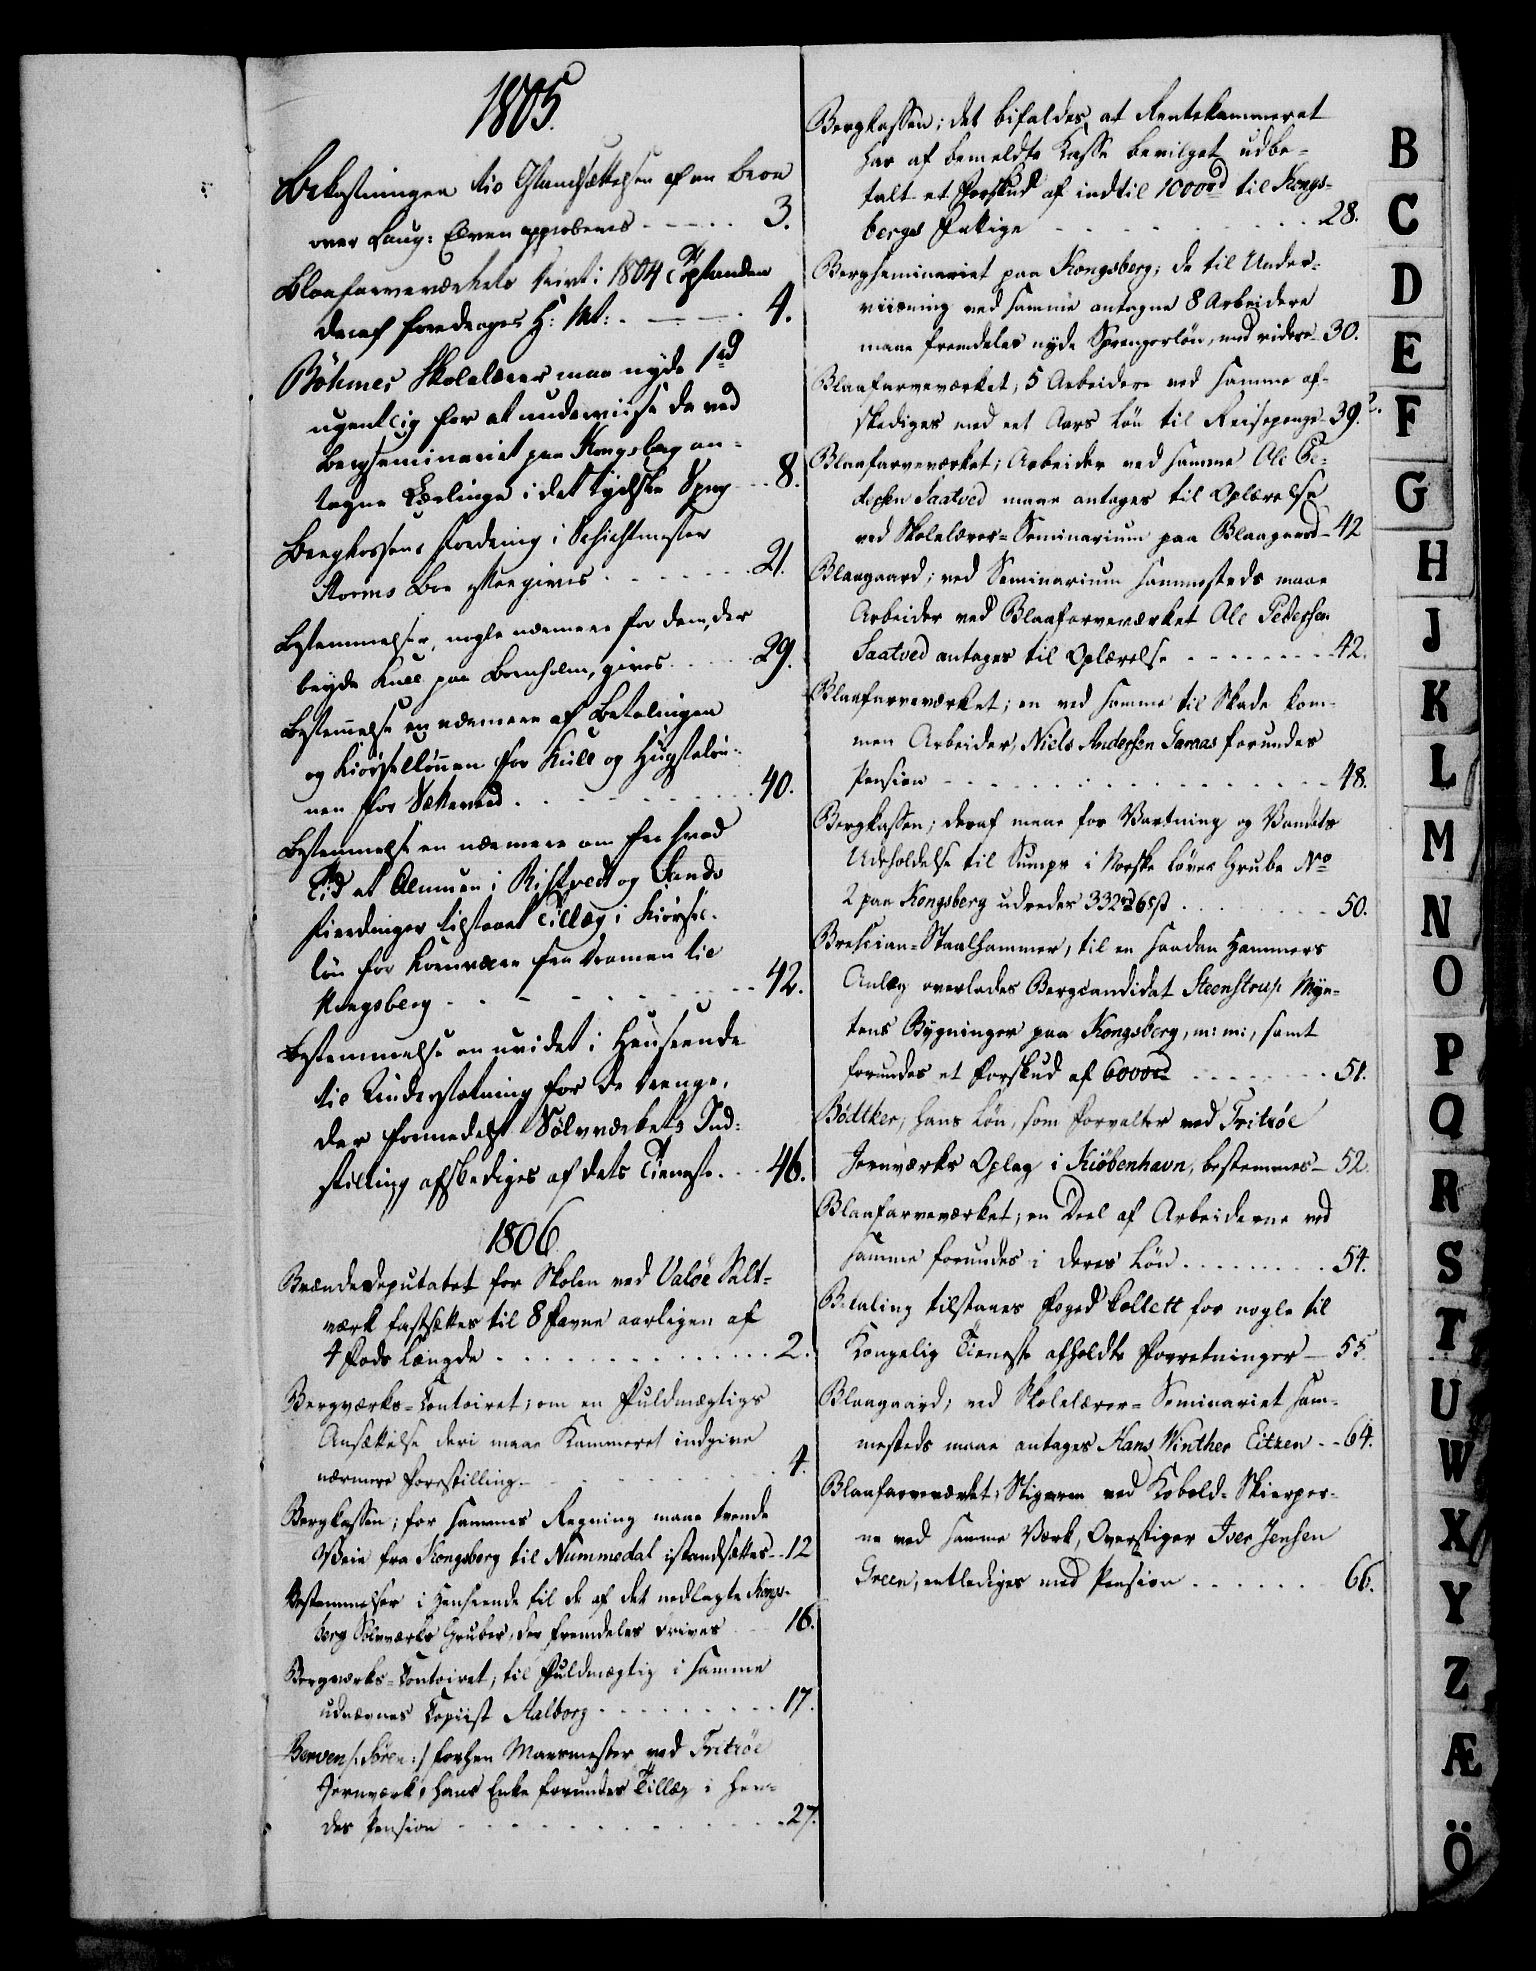 1805.
Bekostningen til Istandsættelsen af en Broe
over Laug: Elven approberes - - - - - 3.
Blaafarveværkets Drivt: 1804 Tilstanden
deraf foredrages H: Mt: - - - 4.
Böhmer Skolelærer maa nyde 1 rd
ugentlig for at underviise de ved
Bergseminariet paa Kongsberg an-
tagne Lærlinge i det tydske Sprog - - 8.
Bergkassens Fordring i Schichtmester
Storms Boe eftergives - - - - - - 21.
Bestemmelser, nogle nærmere for dem, der
bryde Kull paa Bornholm, gives - - - 29.
Bestemmelse en nærmere af Betalingen
og Kiörsellönnen for Kull og Hugstelön-
nen for Sætteved - - - - - - - 40.
Bestemmelse en nærmere om fra hvad
Tid at Almuen i og Sands
Fierdinger tilstaaes Tillæg i Kiörsel-
lön for Kornvare fra Drammen til
Kongsberg - - - - - - - - - 42.
Bestemmelse en uvidet i Henseende
til Understötning for de trænge,
der formedelst Sölvværkets Ind-
stilling afskediges af dets Tieneste - - 46.
1806.
Brændedeputatet for Skolen ved Valöe Salt-
værk fastsættes til 8 Favne aarligen af
4 Fods Længde - - - - - - - - 2.
Bergværks-Contoiret; om en Fuldmægtigs
Ansættelse deri maae Kammeret indgive
nærmere Forestilling - - - - - - - 4.
Bergkassen; for sammes Regning maae tvende
Veie fra Kongsberg til Nummedal istandsættes - - 12
Bestemmelser i Henseende til de af det nedlagte Kongs-
berg Sölvværks Gruber, der fremdeles drives - - 16.
Bergværks-Contoiret, til Fuldmægtig i samme
udnævnes Copiist Aalborg - - - - - - 17.
Berven /: Sören :/ forhen Mavrmester ved Fritzöe
Jernværk, hans Enke forundes Tillæg i hen-
des Pension - - - - - - - - - 27.
Bergkassen; det bifaldes, at Rentekammeret
har af bemeldte Kasse bevilget udbe-
talt et Forskud af indtil 1000 rd til Kongs-
bergs Fattige - - - - - - - - 28.
Bergseminariet paa Kongsberg; de til Under-
viisning ved samme antagne 8 Arbeidere
maae fremdeles nyde Sprengerlön, med videre - 30.
Blaafarveværket, 5 Arbeidere ved samme af-
skediges med eet Aars Lön til Reisepenge - 39.
Blaafarveværket; Arbeider ved samme Ole Pe-
dersen Saatved maae antages til Oplærelse
ved Skolelærer-Seminarium paa Blaagaard - 42
Blaagaard; ved Seminarium sammesteds maae
Arbeider ved Blaafarveværket Ole Pedersen
Saatved antages til Oplærelse - - - - - - 42.
Blaafarveværket; en ved samme til Skade kom-
men Arbeider, Niels Andersen Garaas forundes
Pension - - - - - - - - - - - 48.
Bergkassen; deraf maae for Vartning og Vandets
Udeholdelse til Sumps i Norske Löves Grube No
2 paa Kongsberg udredes 332 rd 6 s - - - 50.
Brescian-Staalhammer, til en saadan Hammers
Anlæg overlades Bergcandidat Steenstrup Myn-
tens Bygninger paa Kongsberg, m: m:, samt
forundes et Forskud af 6000 rd - - - - - 51.
Bödtker, hans Lön, som Forvalter ved Fritzöe
Jernværks Oplag i Kiöbenhavn, bestemmes - 52.
Blaafarveværket; en Deel af Arbeiderne ved
samme forundes i deres Lön . . . . . . . . . 54.
Betaling tilstaaes Foged Collett for nogle til
Kongelig Tieneste afholdte Forretninger - 55.
Blaagaard; ved Skolelærer-Seminariet sam-
mesteds maae antages Hans Winther Eitzen - - 64.
Blaafarveværket; Stigeren ved Kobold-Skierper-
ne ved samme Værk, Overstiger Iver Jensen
Green, entlediges med Pension . . . . . . . 66.
B
C
D
E
F
G
H
J
K
L
M
N
O
P
Q
R
S
T
U
W
X
Y
Z
Æ
Ö